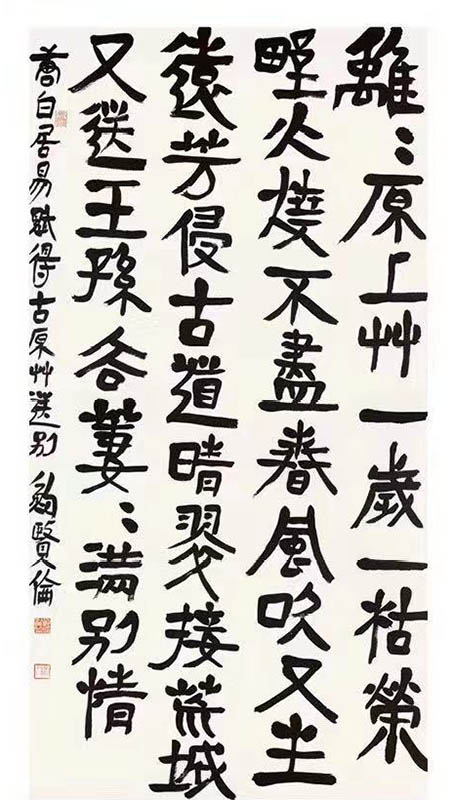 離〻原上艸一歲一枯榮
野火燒不盡春風吹又生
遠芳侵古道晴翠接荒城
又送王孫去萋〻滿別情
唐白居易賦得古原艸送別 鮑賢倫